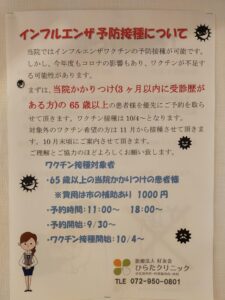 インフルエンザ予防接種について
当院ではインフルエンザワクチンの予防接種が可能です。
しかし、今年度もコロナの影響もあり、ワクチンが不足す
る可能性があります。
まずは、当院かかりつけ(3ヶ月以内に受診歴が
ある方)の65歳以上の患者様を優先にご予約を取ら
せて頂きます。ワクチン接種は10/4～となります。
対象外のワクチン希望の方は11月から接種させて頂きま
す。10月末頃にご案内させて頂きます。
ご理解とご協力のほどよろしくお願い致します。
ワクチン接種対象者
・65歳以上の当院かかりつけの患者様
※費用は市の補助あり 1000円
・予約時間:11:00～ 18:00～
・予約開始:9/30～
・ワクチン接種開始:10/4～
医療法人
ひらたクリニック
TLE 072-950-0801